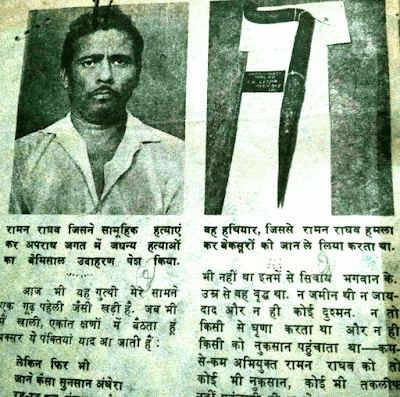 रामन राघव जिसने सामूहिक हत्याएं
कर अपराध जगत में जघन्य हत्याओं
का बेमिसाल उदाहरण पेश किया.
आज भी यह गुत्थी मेरे सामने
एक गूढ़ पहेली जैसी खड़ी है. जब भी
मैं खाली, एकांत क्षणों में बैठता हूं
अक्सर ये पंक्तियां याद आ जाती हैं:
लेकिन फिर भी
जाने कैसा सुनसान अंधेरा
वह हथियार, जिससे रामन राघव हमला
कर बेकसूरों की जान ले लिया करता था.
भी नहीं था इनमें से सिवाय भगवान के.
उम्र से वह वृद्ध था. न जमीन थी न जाय-
दाद और न ही कोई दुश्मन. न तो
किसी से घृणा करता था और न ही
किसी को नुकसान पहुंचाता था—कम-
से-कम अभियुक्त रामन राघव को तो
कोई भी नुकसान, कोई भी तकलीफ
नहीं